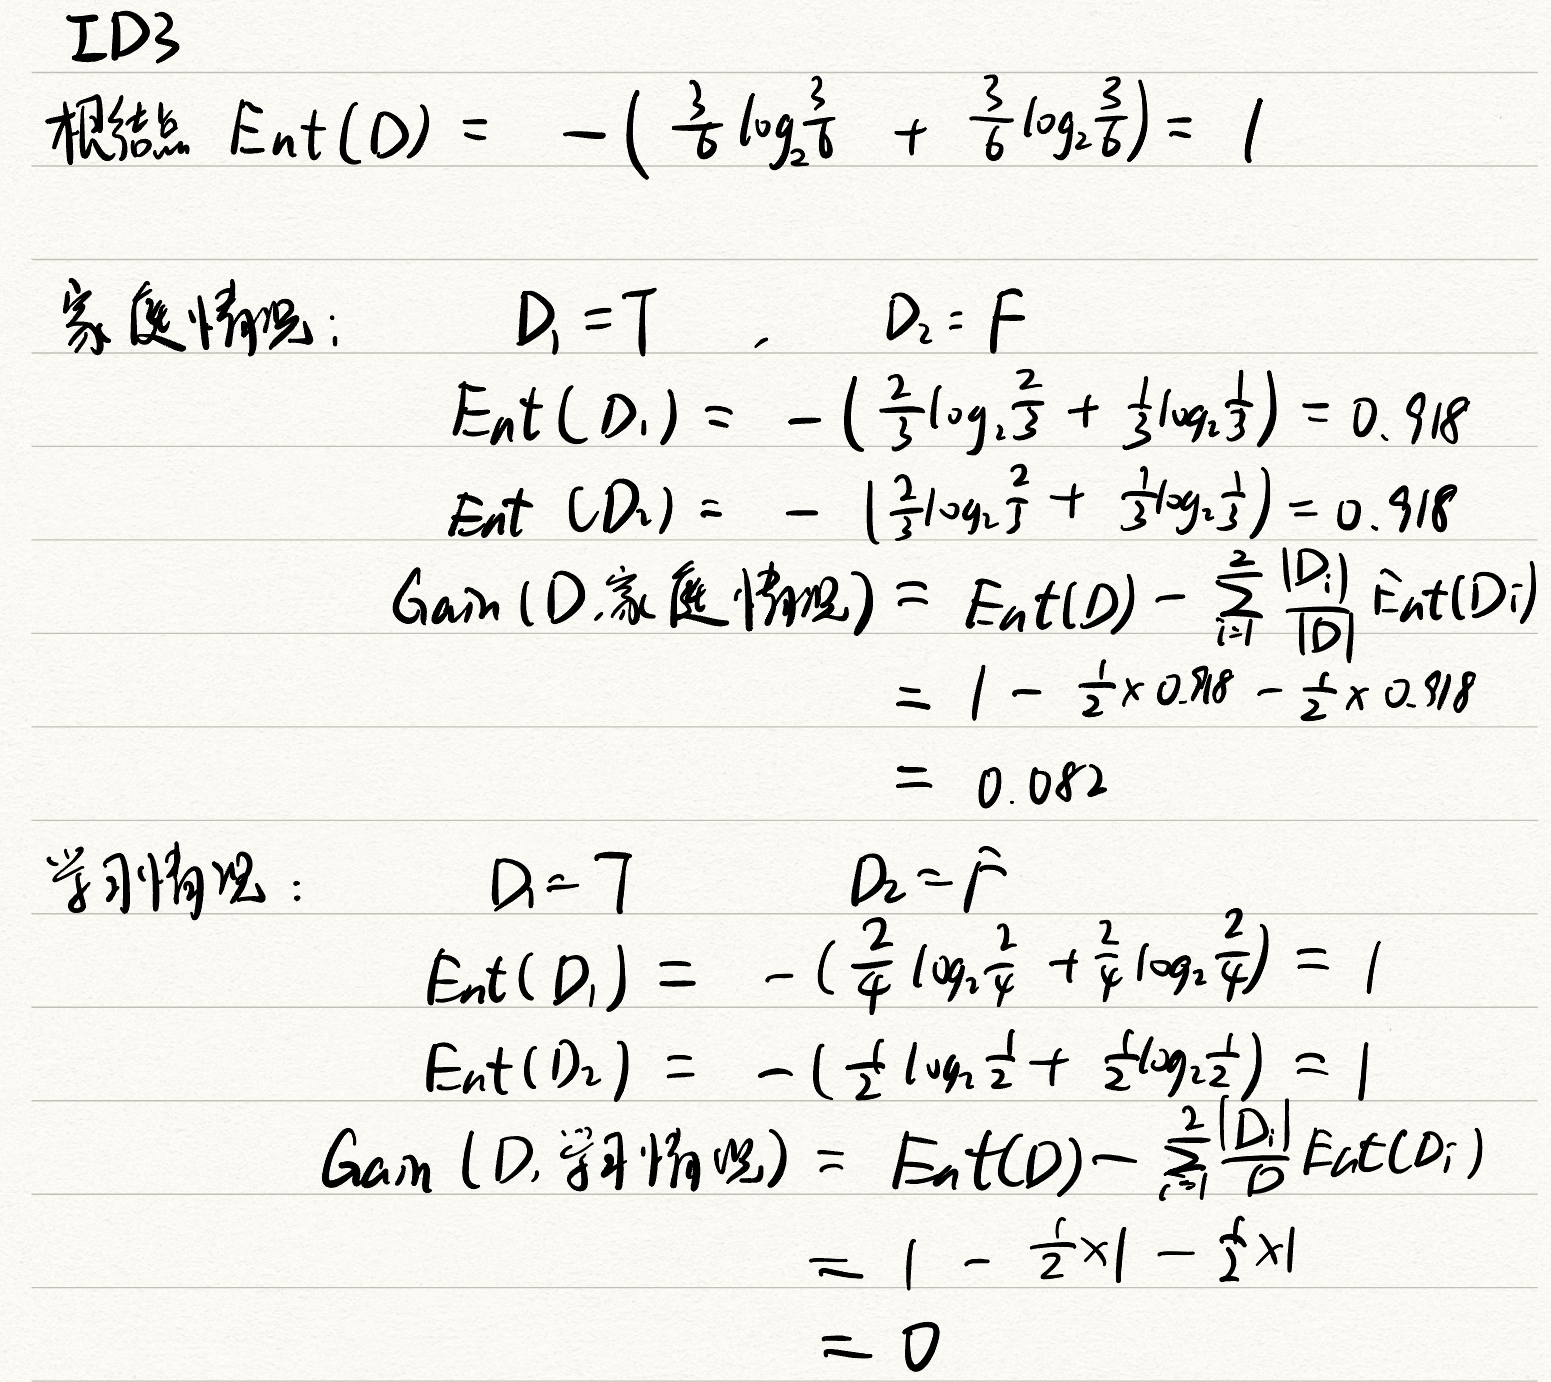 ID3
根结点 Ent(D) = -(3/6 log₂ 3/6 + 3/6 log₂ 3/6) = 1
家庭情况: D₁ = T , D₂ = F
Ent(D₁) = -(2/3 log₂ 2/3 + 1/3 log₂ 1/3) = 0.918
Ent(D₂) = -(2/3 log₂ 2/3 + 1/3 log₂ 1/3) = 0.918
Gain(D,家庭情况) = Ent(D) - ∑_{i=1}^{2} |Dᵢ|/|D| Ent(Dᵢ)
= 1 - 1/2 × 0.918 - 1/2 × 0.918
= 0.082
学习情况: D₁ = T D₂ = F
Ent(D₁) = -(2/4 log₂ 2/4 + 2/4 log₂ 2/4) = 1
Ent(D₂) = -(1/2 log₂ 1/2 + 1/2 log₂ 1/2) = 1
Gain(D,学习情况) = Ent(D) - ∑_{i=1}^{2} |Dᵢ|/D Ent(Dᵢ)
= 1 - 1/2 × 1 - 1/2 × 1
= 0